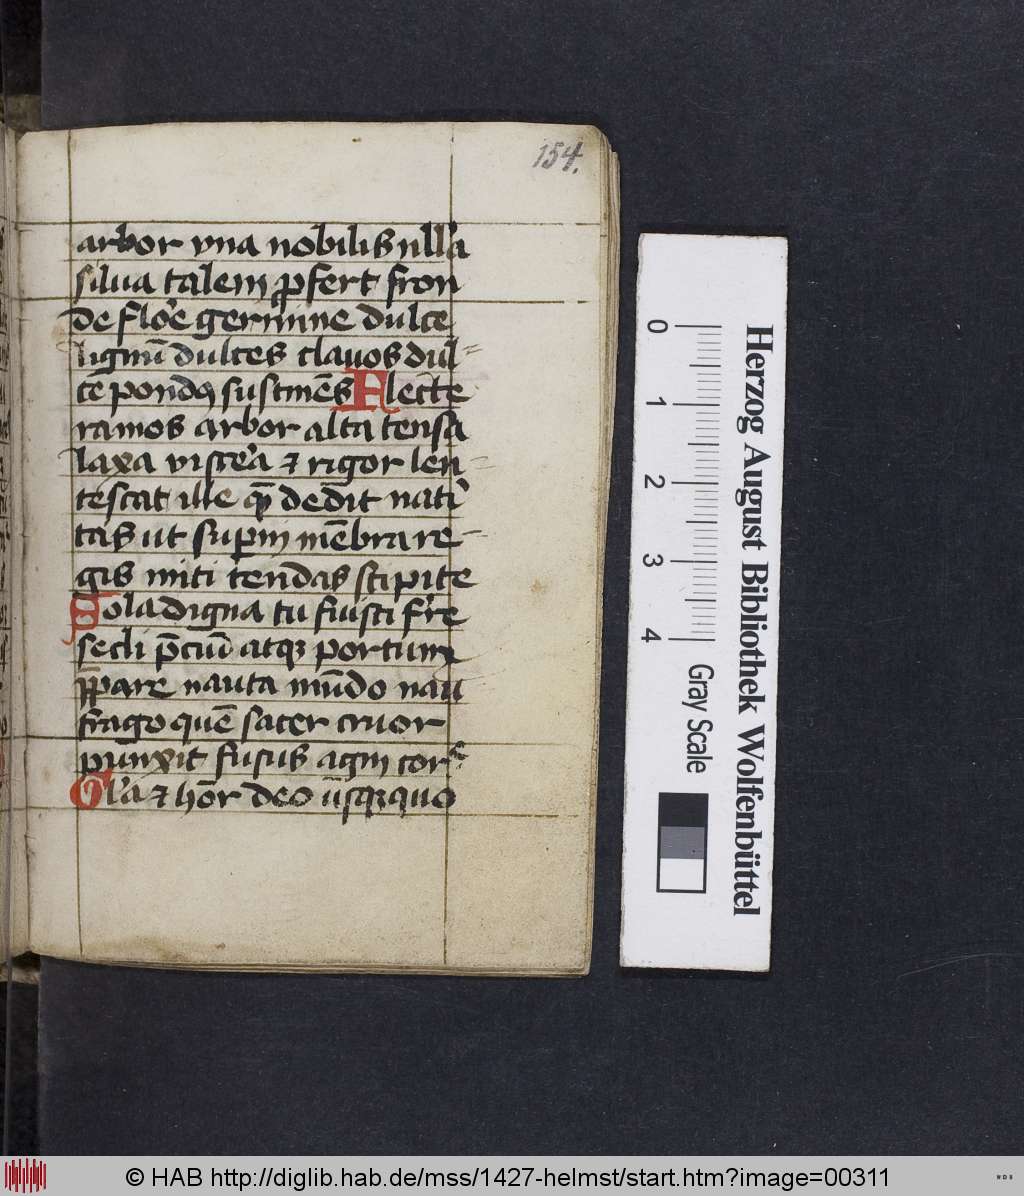 154.
arbor vna nobilis nllʼa
silua talem ꝓfert fron
de floʼe germine dulce
lignū dulces clauos dul=
ce pondꝯ sustinēs Flecte
ramos arbor alta tensa
laxa visceʼa ⁊ rigor len=
tescat ille qē dedit nati
tas ut supni mēbra re=
gis miti tendas stipite
Sola digna tu fuisti fʼre
secli p̄ciū atqꝫ portum
p̄pare nauta mūdo nau
frago quē sacer cruor
punxit fusus agni corꝑᵉ
Glʼa ⁊ hōr deo ūsqꝫquo
0 1 2 3 4
Gray Scale
Herzog August Bibliothek Wolfenbüttel
© HAB http://diglib.hab.de/mss/1427-helmst/start.htm?image=00311